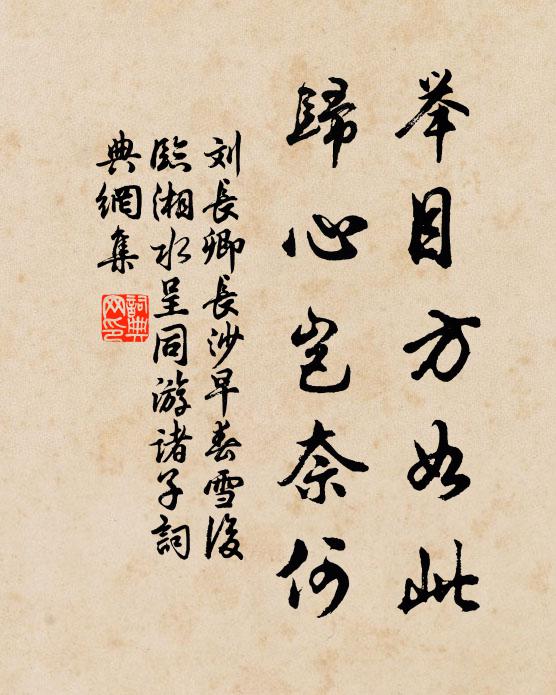 举目方如此
歸心岂奈何
刘長卿長沙早春雪後
臨湘水呈同游諸子詞
典網集
詞典
网印